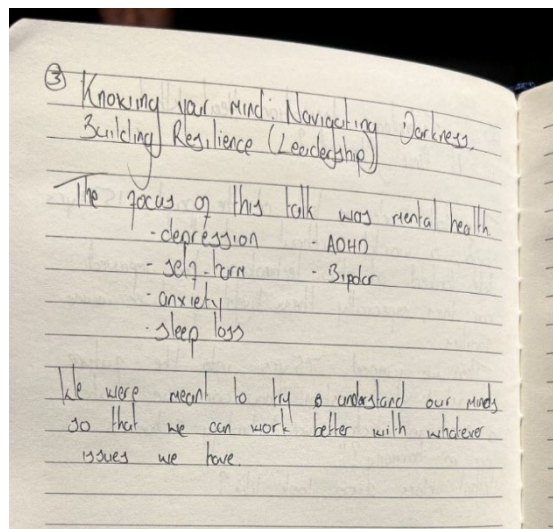 ③ Knowing your Mind: Navigating Darkness,
Building Resilience (Leadership)
The focus of this talk was mental health
- depression - ADHD
- self-harm - Bipolar
- anxiety
- sleep loss
We were meant to try & understand our minds
so that we can work better with whatever
issues we have.